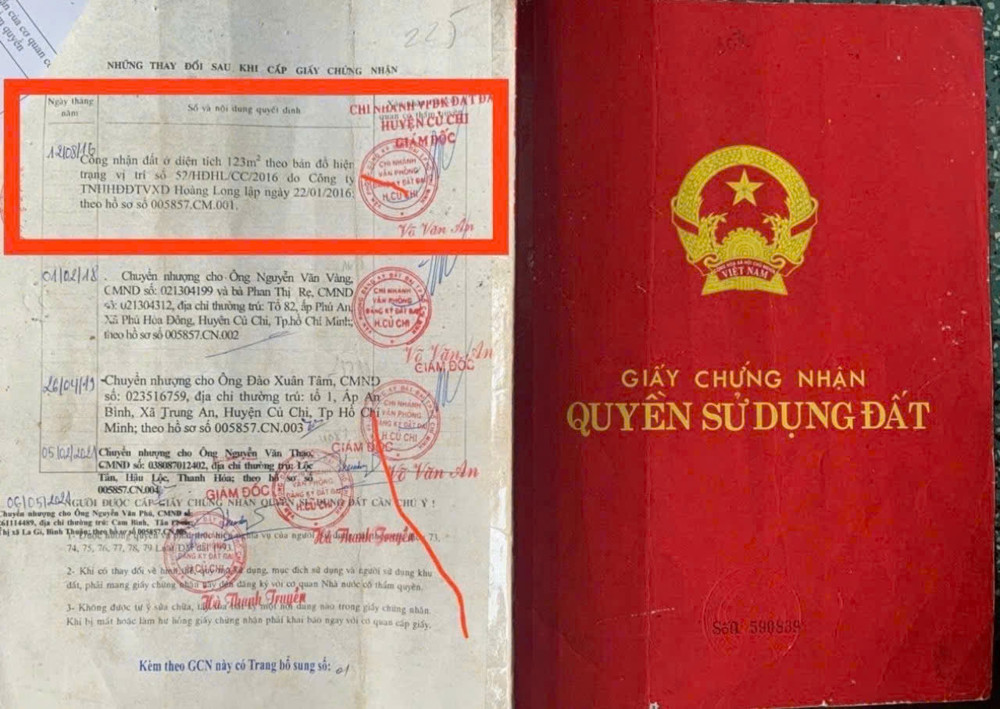 ận của cơ quan có
ẩm quyền
225
NHỮNG THAY ĐỔI SAU KHI CẤP GIẤY CHỨNG NHẬN
Ngày tháng năm
Số và nội dung quyết định
CHI NHÁNH VPĐK ĐẤT ĐA
HUYỆN CỦ CHI
GIÁM ĐỐC
12/08/16
Công nhận đất ở diện tích 123m² theo bản đồ hiện
trạng vị trí số 57/HĐHL/CC/2016 do Công ty
TNHHĐĐTVXD Hoàng Long lập ngày 22/01/2016;
theo hồ sơ số 005857.CM.001.
CHI NHÁNH
VĂN PHÒNG
ĐĂNG KÝ ĐẤT ĐAI
H.CỦ CHI
Võ Văn An
01/02/18
Chuyển nhượng cho Ông Nguyễn Văn Vàng,
CMND số: 021304199 và bà Phan Thị Rẹ, CMND
số: 021304312, địa chỉ thường trú: Tổ 82, ấp Phú An,
Xã Phú Hòa Đông, Huyện Củ Chi, Tp.hồ Chí Minh;
theo hồ sơ số 005857.CN.002
CHI NHÁNH
VĂN PHÒNG
ĐĂNG KÝ ĐẤT ĐAI
H.CỦ CHI
Võ Văn An
GIÁM ĐỐC
26/04/19
-Chuyển nhượng cho Ông Đào Xuân Tâm, CMND
số: 023516759, địa chỉ thường trú: tổ 1, Ấp An
Bình, Xã Trung An, Huyện Củ Chi, Tp Hồ Chí
Minh; theo hồ sơ số 005857.CN.003
CHI NHÁNH
VĂN PHÒNG
H.CỦ CHI
GIÁM ĐỐC
Võ Văn An
05/02/2021
Chuyển nhượng cho Ông Nguyễn Văn Thạo,
CMND số: 038087012402, địa chỉ thường trú: Lộc
Tân, Hậu Lộc, Thanh Hóa; theo hồ sơ số
005857.CN.004
GIÁM ĐỐC
Hà Thanh Truyền
06/05/2021
NGƯỜI ĐƯỢC CẤP GIẤY CHỨNG NHẬN QUYỀN SỬ DỤNG ĐẤT CẦN CHÚ Ý !
Chuyển nhượng cho Ông Nguyễn Văn Phú, CMND số:
261114489, địa chỉ thường trú: Cam Bình, Tân
Thị xã La Gi, Bình Thuận; theo hồ sơ 005857.CN.
1- Được hưởng quyền và của người 73,
74, 75, 76, 77, 78, 79 Luật Đất đai 1993.
2- Khi có thay đổi về hình thể, quy mô sử dụng, mục đích sử dụng và người sử dụng khu
đất, phải mang giấy chứng nhận này đến đăng ký với cơ quan Nhà nước có thẩm quyền.
ĐĂNG KÝ ĐẤT ĐAI
H.CỦ CHI
Hà Thanh Truyền
3- Không được tự ý sửa chữa, tẩy xóa bất kỳ một nội dung nào trong giấy chứng nhận.
Khi bị mất hoặc làm hư hỏng giấy chứng nhận phải khai báo ngay với cơ quan cấp giấy.
Kèm theo GCN này có Trang bổ sung số: 01
VIỆT NAM
GIẤY CHỨNG NHẬN
QUYỀN SỬ DỤNG ĐẤT